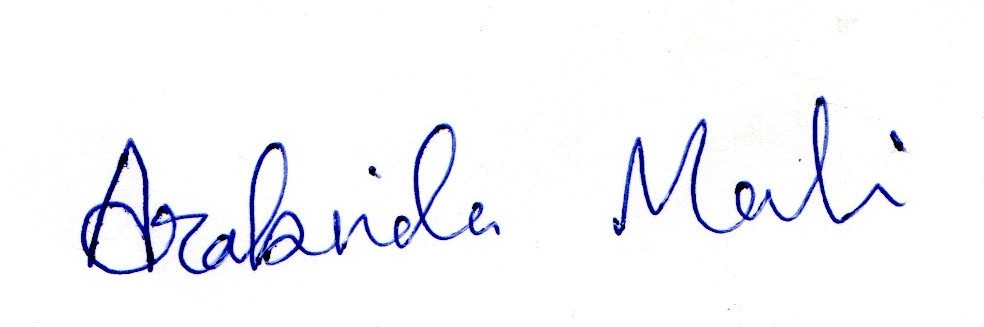 Arabinda Mali